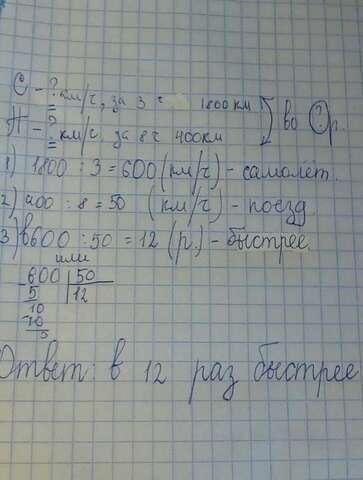 С - ? км/ч, за 3 ч 1800 км
П - ? км/ч, за 8 ч 400 км
во ? р.
1) 1800 : 3 = 600 (км/ч) - самолёт.
2) 400 : 8 = 50 (км/ч) - поезд
3) в 600 : 50 = 12 (р.) - быстрее.
или
600 50
5 12
10
10
0
Ответ: в 12 раз быстрее